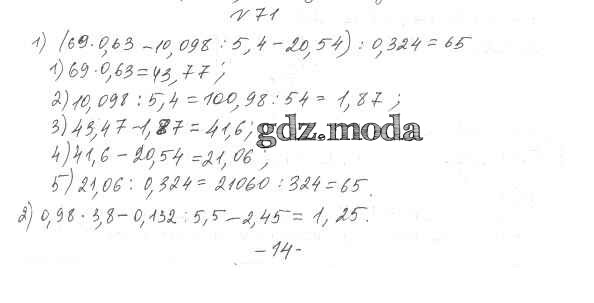 № 71
1) (69·0,63 - 10,098 : 5,4 - 20,54) : 0,324 = 65
1) 69·0,63 = 43,77 ;
2) 10,098 : 5,4 = 100,98 : 54 = 1,87 ;
3) 43,47 - 1,87 = 41,6 ;
gdz.moda
4) 41,6 - 20,54 = 21,06 ;
5) 21,06 : 0,324 = 21060 : 324 = 65.
2) 0,98 · 3,8 - 0,132 : 5,5 - 2,45 = 1,25.
- 14 -